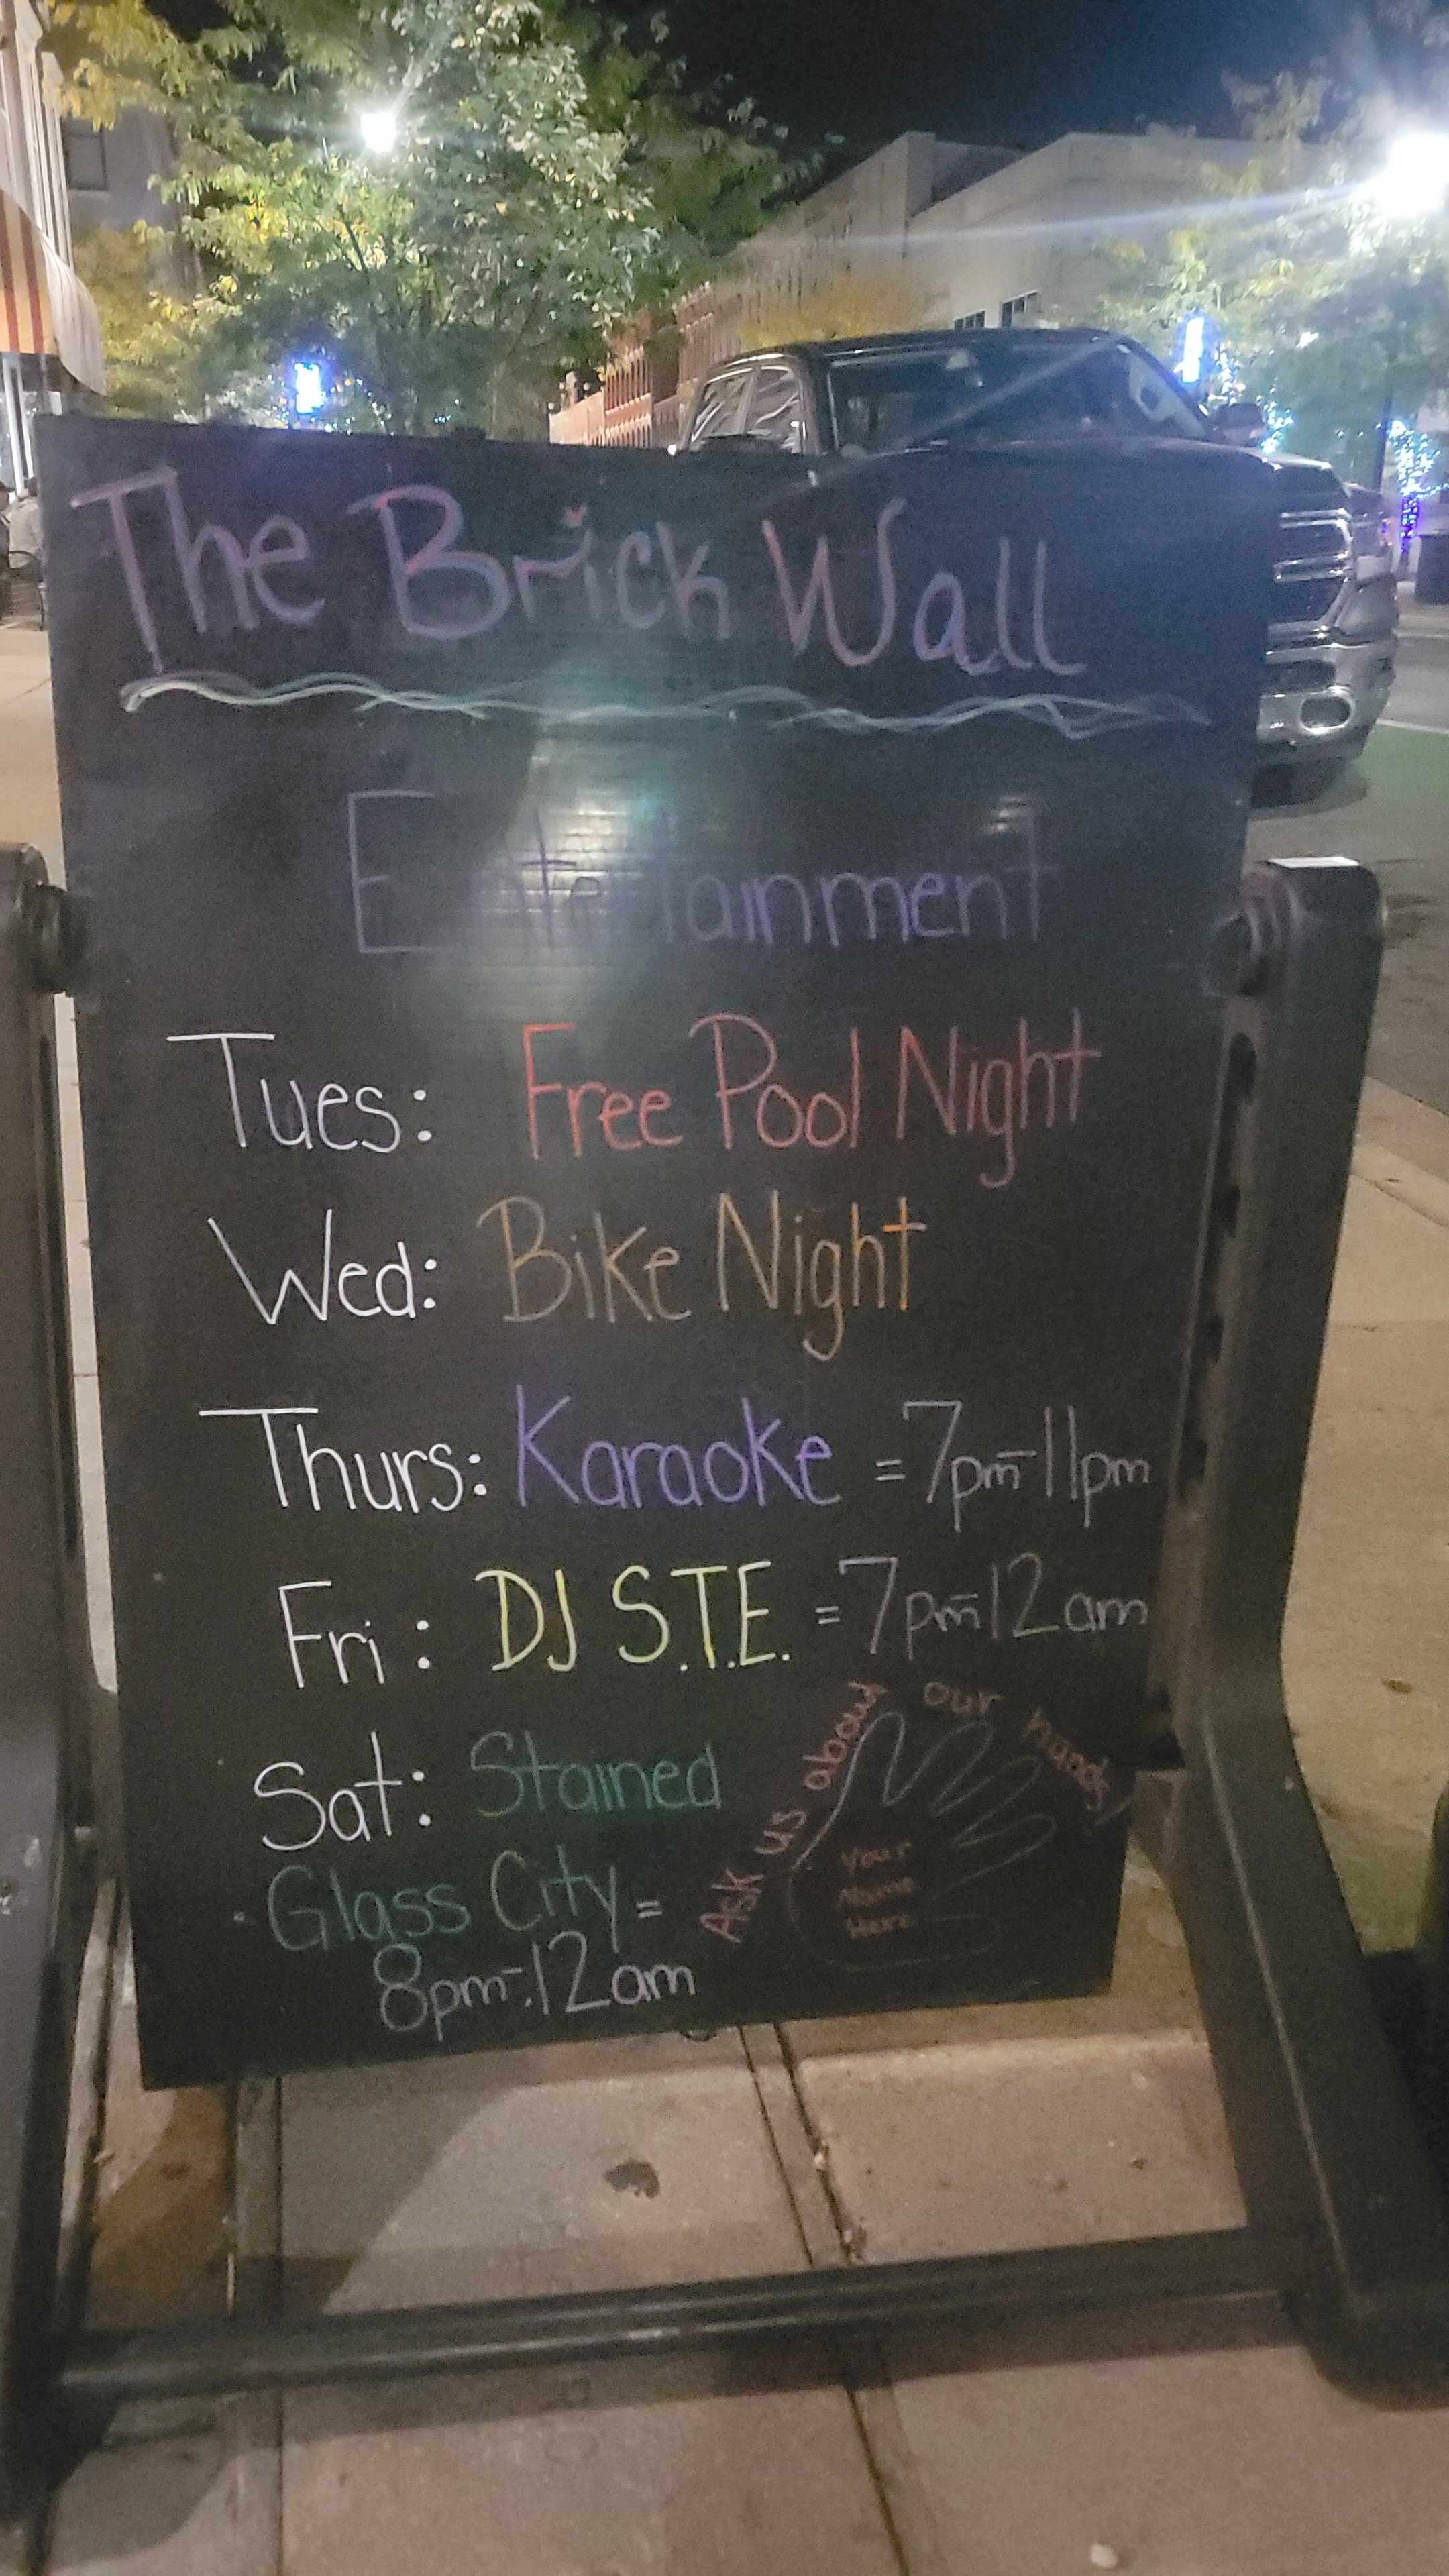 The Brick Wall
Entertainment
Tues: Free Pool Night
Wed: Bike Night
Thurs: Karaoke = 7pm-11pm
Fri: DJ S.T.E. = 7pm-12am
Sat: Stained
Glass City =
8pm-12am
Ask us about our hands
Your
Name
Here